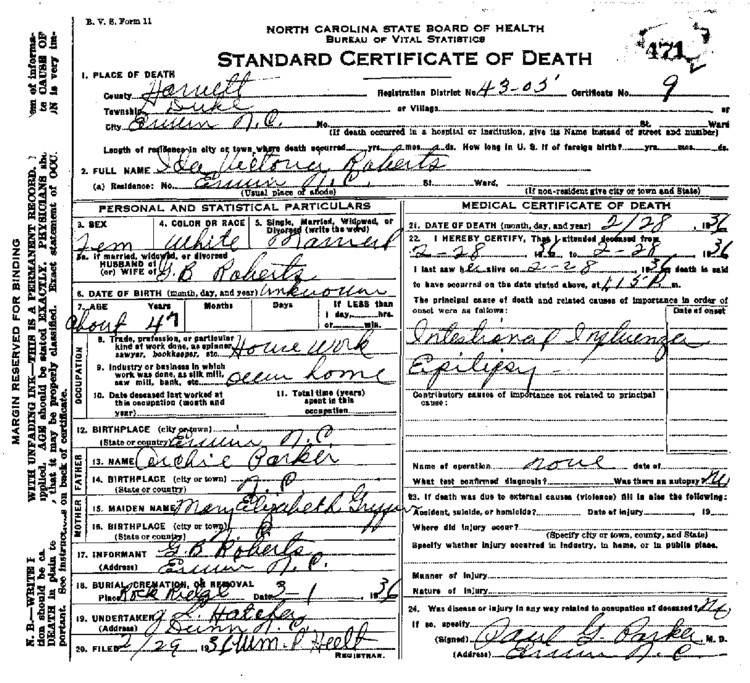 B. V. S. Form 11
NORTH CAROLINA STATE BOARD OF HEALTH
BUREAU OF VITAL STATISTICS
STANDARD CERTIFICATE OF DEATH
471
1. PLACE OF DEATH
County Harnett Registration District No. 43-05 Certificate No. 9
Township Duke or Village or
City Erwin N.C. No. St. Ward
(If death occurred in a hospital or institution, give its Name instead of street and number)
Length of residence in city or town where death occurred yrs. mos. ds. How long in U. S. if of foreign birth? yrs. mos. ds.
2. FULL NAME Ida Victoria Roberts
(a) Residence: No. Erwin N.C. St. Ward,
(Usual place of abode) (If non-resident give city or town and State)
PERSONAL AND STATISTICAL PARTICULARS
3. SEX 4. COLOR OR RACE 5. Single, Married, Widowed, or Divorced (write the word)
Fem White Married
5a. If married, widowed, or divorced
HUSBAND of
(or) WIFE of G.B Roberts
6. DATE OF BIRTH (month, day, and year) unknown
7. AGE Years Months Days If LESS than
1 day, hrs.
or min.
About 47
OCCUPATION
8. Trade, profession, or particular kind of work done, as spinner, sawyer, bookkeeper, etc. House Work
9. Industry or business in which work was done, as silk mill, saw mill, bank, etc. own home
10. Date deceased last worked at this occupation (month and year)
11. Total time (years) spent in this occupation
12. BIRTHPLACE (city or town)
(State or country) Erwin N.C
FATHER
13. NAME Archie Parker
14. BIRTHPLACE (city or town)
(State or country) N.C
MOTHER
15. MAIDEN NAME Mary Elizabeth
16. BIRTHPLACE (city or town)
(State or country) N.C
17. INFORMANT G.B Roberts
(Address) Erwin N.C.
18. BURIAL, CREMATION, OR REMOVAL
Place Rock Ridge Date 3-1, 1936
19. UNDERTAKER J L Hatcher
(Address) Dunn N.C.
20. FILED 2/29 1936 Wm. P
REGISTRAR.
MEDICAL CERTIFICATE OF DEATH
21. DATE OF DEATH (month, day, and year) 2/28, 1936
22. I HEREBY CERTIFY, That I attended deceased from
2-28, 1936, to 2-28, 1936
I last saw her alive on 2-28, 1936, death is said
to have occurred on the date stated above, at 415 P. m.
The principal cause of death and related causes of importance in order of onset were as follows: Date of onset
Intestional Influenza
Epilipsy
Contributory causes of importance not related to principal cause:
Name of operation none date of
What test confirmed diagnosis? Was there an autopsy? No
23. If death was due to external causes (violence) fill in also the following:
Accident, suicide, or homicide? Date of injury , 19
Where did injury occur?
(Specify city or town, county, and State)
Specify whether injury occurred in industry, in home, or in public place.
Manner of injury
Nature of injury
24. Was disease or injury in any way related to occupation of deceased? No
If so, specify
(Signed) Paul G. Parker, M. D.
(Address) Erwin N.C
MARGIN RESERVED FOR BINDING
WITH UNFADING INK—THIS IS A PERMANENT RECORD.
AGE should be stated EXACTLY. PHYSICIANS
that it may be properly classified. Exact statement of OCC
on back of certificate.
N. B.—WRITE
tion should be
DEATH in plain
portant. See